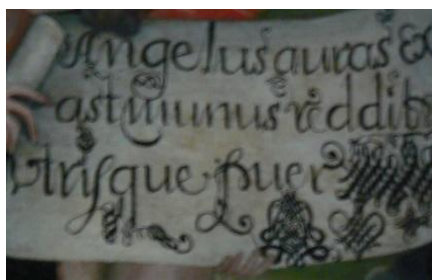 Angelus auras &
ast munus reddit
utrisque puer